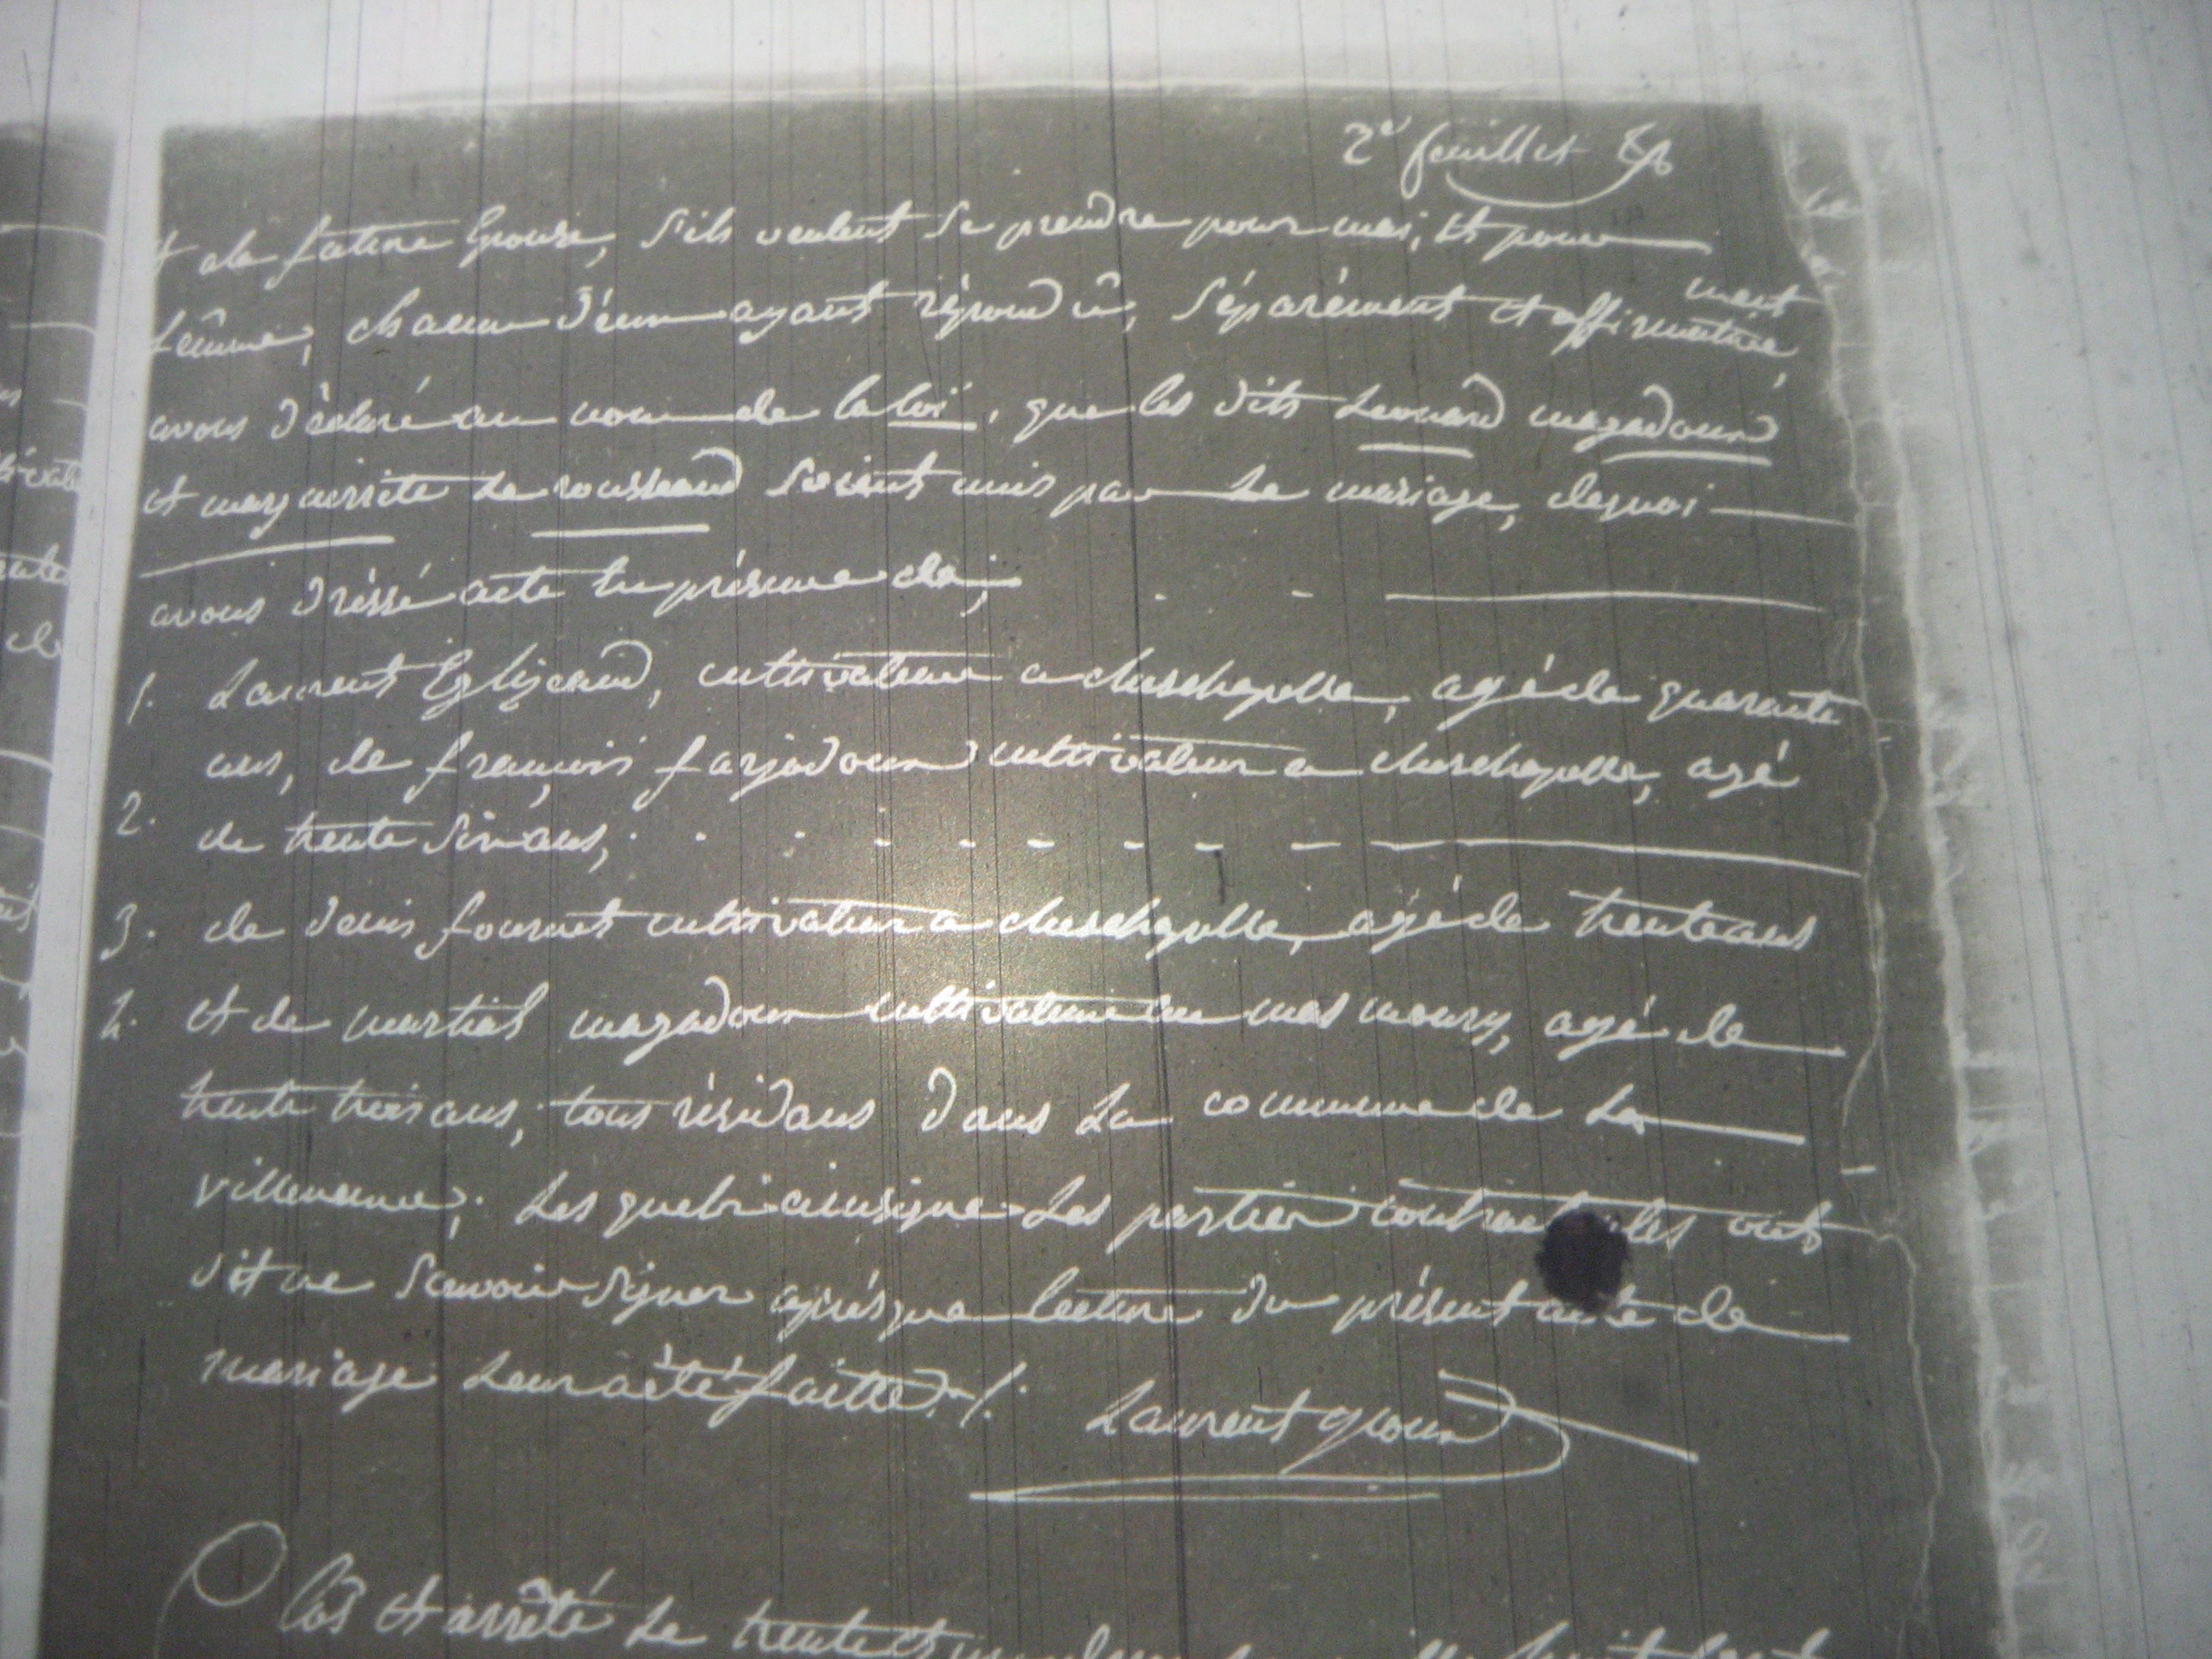 2e feuillet
et de la future Epouse, s'ils veulent se prendre pour mari, et pour
fêmme, chacun d'eux ayant répondû, séparément et affirmative
ment
avons déclaré au nom de la loi, que les dits Leonard magadoux
et marguerite Le rousseaud soient unis par Le mariage, dequoi
avons dréssé acte En présence de,
1. Laurent Eglizeaud, cultivateur a cheschapelle, agé de quarante
ans, de françois farjadoux cultivateur a cheschapelle, agé
2. de trente six ans,
3. de denis fournet cultivateur a cheschapelle, agé de trente ans
4. et de martial magadoux cultivateur au mas moury, agé de
trente trois ans, tous résidans dans La commune de La
villeneuve; Les quels ainsi que Les parties contractantes ont
dit ne Scavoir Signer aprés que lecture du présent acte de
mariage Leur a été faitte ./.
Laurent
Clos et arrêté Le trente et